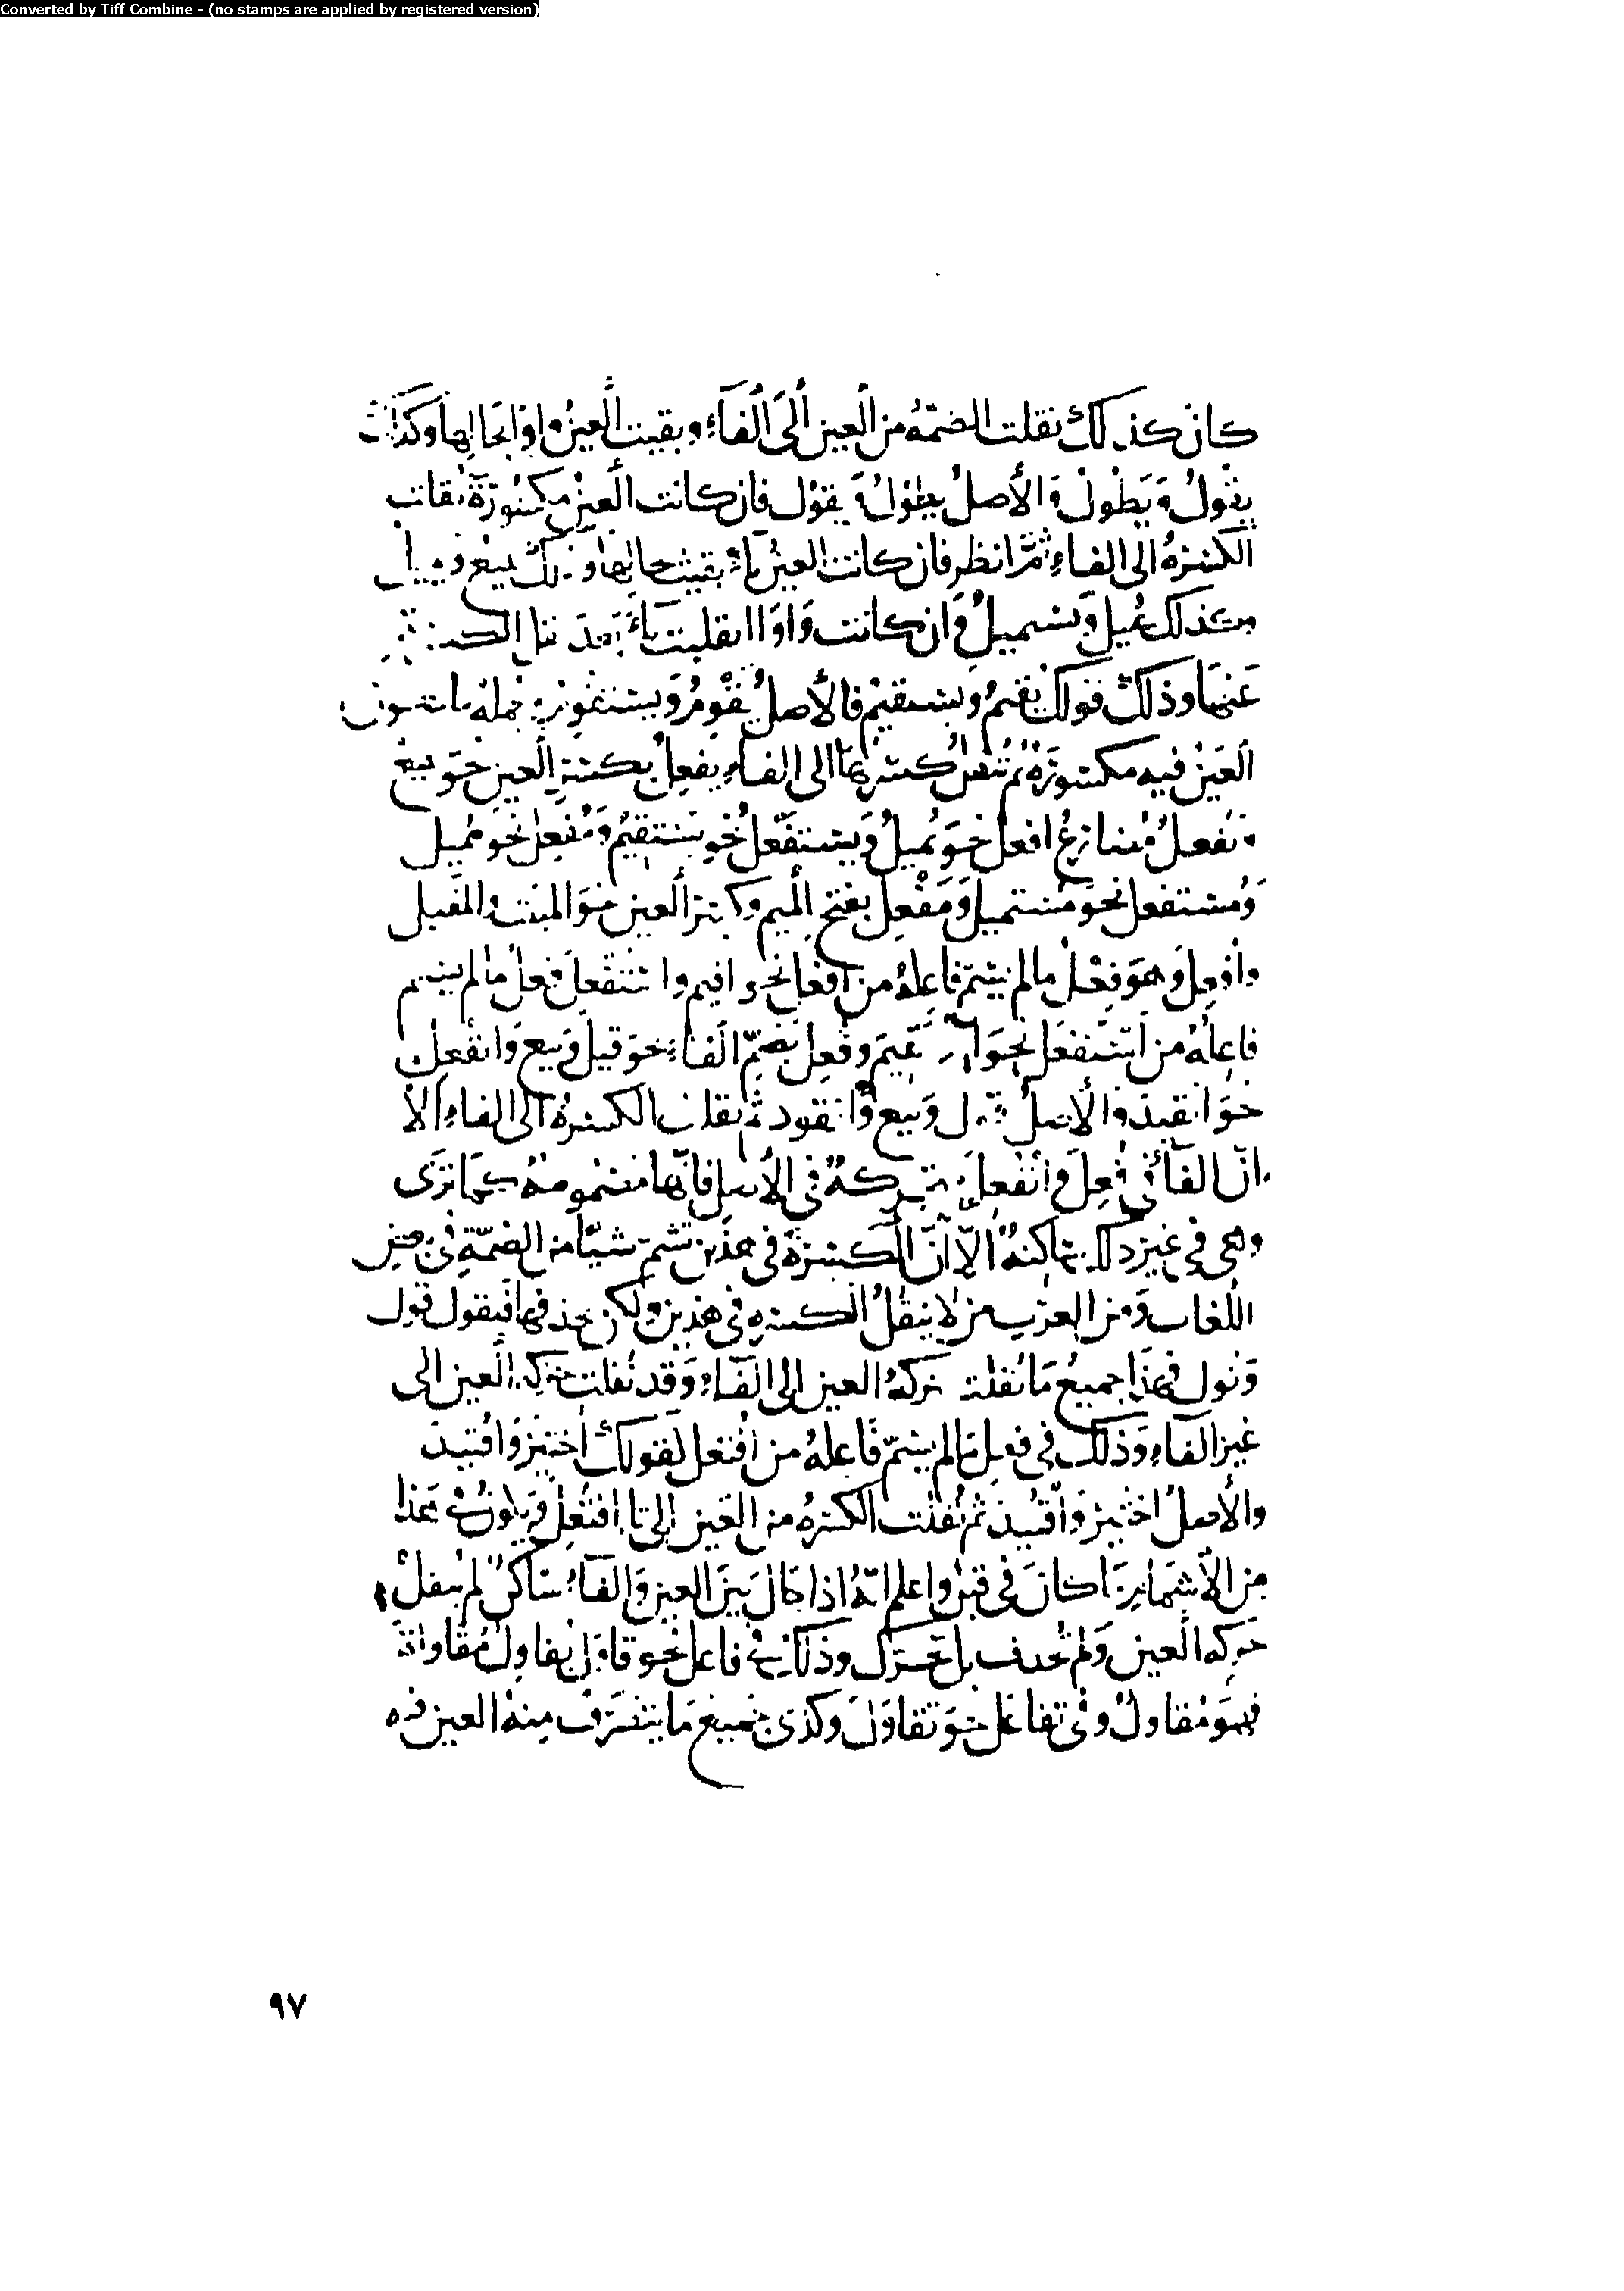 Converted by Tiff Combine - (no stamps are applied by registered version)
كان كذلك نقلت الضمّة من العين إلى الفاء وبقيت العين واوًا بحالها وكذلك
يقُولُ وَيَطُولُ وَالأصلُ يطوُلُ وَ يقوُل فان كانت العين مكسُورَة نقلت
الكسرةُ الى الفاءِ ثمَّ انظر فان كانت العينُ ياءً بقيت بحالِها وذلك يبيع و
كذلك يميل وَيستميلُ وَان كانت وَاوًا انقلبت ياءً
عَنهَا وذلكَ قولك يقيمُ ويستقيمُ فالأصلُ يُقْوِمُ وَيَستَقْوِمُ
العَين فيه مكسُورَةٌ ثم تنقل كسرتها الى الفاءِ يفعِلُ بكسرةِ العين نحو يبيع
وَيُفعِلُ مُضارعُ افعلَ نحوَ يُميلُ وَيستفعلُ نحو يَستقيمُ وَمُفعِل نحو مُميل
وَمُستفعل نحوَ مُستميل وَمَفْعِل بفتح الميم وكسر العين نحوَ المبيت والمقيل
وأُفعِلَ وَهوَ فِعْلُ ما لم يسَمّ فاعِلهُ من أفعل نحو اقيم واستُفعلَ فعلُ ما لم يسم
فاعلهُ من استفعَل نحوَ وفُعِلَ بضمّ الفاءِ نحوَ قيل وَبيع وَانفُعِلَ
نحوَ انقيدَ والأصلُ قول وَبيع وَانقود ثم نقلت الكسرةُ الى الفاءِ الا
انّ الفاءَ في فُعِلَ وَانفُعل متحركةٌ في الأصل فانّها مضمومةٌ كما ترَى
وهي في غير ذلك ساكنةٌ الّا أنَّ الكسرَة في هذين تشمّ شيئًا من الضمّةِ في بعض
اللغات وَمن العرَب من لا ينقلُ الكسرة في هذين ولكن يحذفها فيقول قول
وَبُول فهذا جميعُ مَا نُقلت حركةُ العين إلى الفاءِ وَقد نُقلت حركة العين الى
غير الفاءِ وَذلك في فعل مَا لم يسَمّ فَاعلهُ من افتعل لقولك اختيرَ وَاقتيدَ
والأصلُ اختيرَ وَاقتُودَ ثم نُقلت الكسرةُ من العَين الى تا افتُعِلَ وَيلزمُ في هذا
من الأشمام مَا كانَ في قبل واعلم انّهُ اذا حَالَ بَينَ العين وَالفاءِ ساكنٌ لم ينقل
حركه العين وَلم تحذف بل تحرّك وذلك في فاعل نحو قاول يقاوِلُ مُقاولةً
فهوَ مُقاولٌ وفي تفاعَل نحوَ تَقاوَلَ وكذى جميعُ مَا يتصَرَّفُ مِنهُ العين فيه
٩٧